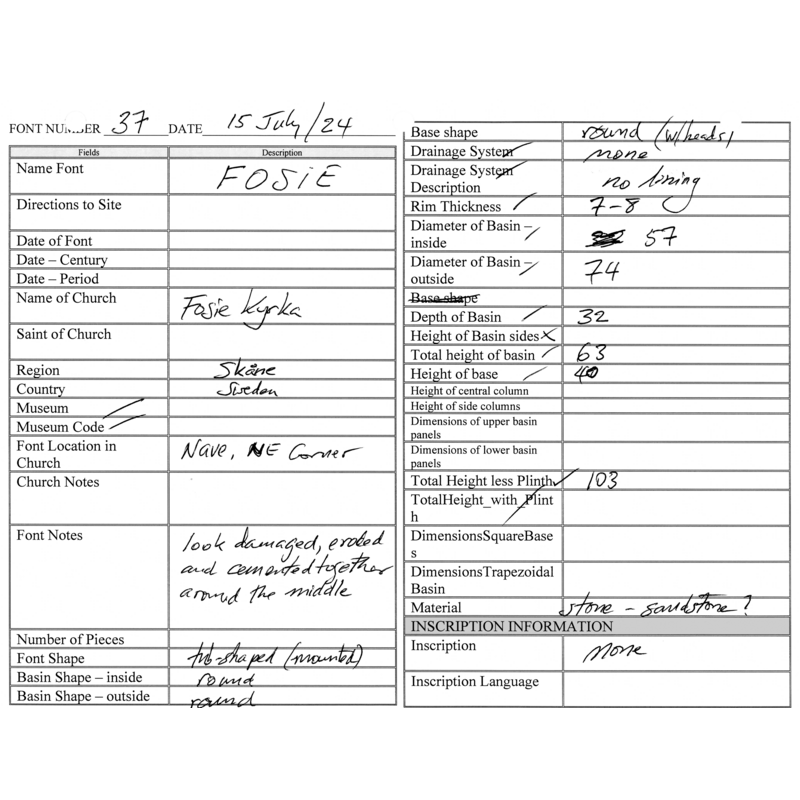 FONT NUMBER 37 DATE 15 July/24
Fields Description
Name Font FOSIE
Directions to Site
Date of Font
Date – Century
Date – Period
Name of Church Fosie Kyrka
Saint of Church
Region Skåne
Country Sweden
Museum
Museum Code
Font Location in
Church
Nave, NE Corner
Church Notes
Font Notes
look damaged, eroded
and cemented together
around the middle
Number of Pieces
Font Shape tub-shaped (mounted)
Basin Shape – inside round
Basin Shape – outside round
Base shape round (w/heads)
Drainage System none
Drainage System
Description
no lining
Rim Thickness 7-8
Diameter of Basin –
inside
57
Diameter of Basin –
outside
74
Base shape
Depth of Basin 32
Height of Basin sides
Total height of basin 63
Height of base 40
Height of central column
Height of side columns
Dimensions of upper basin
panels
Dimensions of lower basin
panels
Total Height less Plinth 103
TotalHeight_with_Plint
h
DimensionsSquareBase
s
DimensionsTrapezoidal
Basin
Material stone - sandstone?
INSCRIPTION INFORMATION
Inscription none
Inscription Language